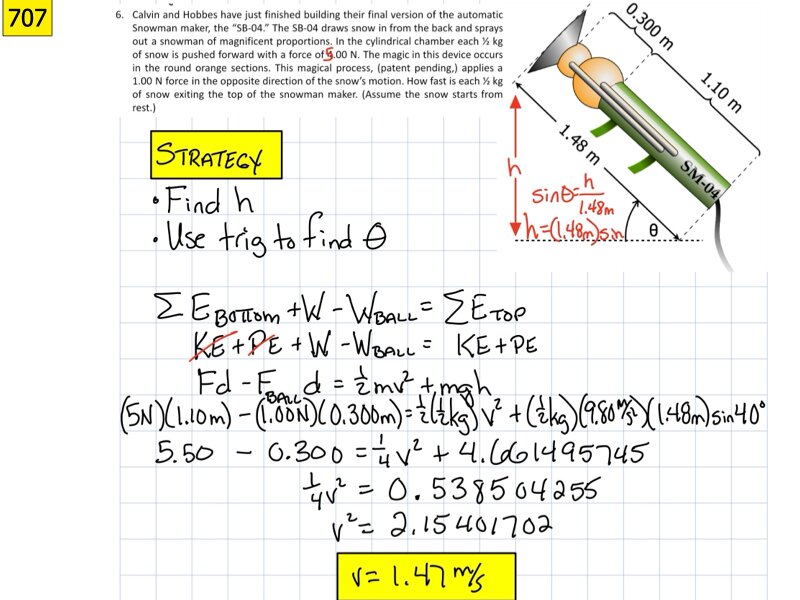 707
6. Calvin and Hobbes have just finished building their final version of the automatic
Snowman maker, the "SB-04." The SB-04 draws snow in from the back and sprays
out a snowman of magnificent proportions. In the cylindrical chamber each ½ kg
of snow is pushed forward with a force of 5.00 N. The magic in this device occurs
in the round orange sections. This magical process, (patent pending,) applies a
1.00 N force in the opposite direction of the snow's motion. How fast is each ½ kg
of snow exiting the top of the snowman maker. (Assume the snow starts from
rest.)
0.300 m
1.10 m
1.48 m
SM-04
h
sinθ=h/1.48m
h=(1.48m)sin
θ
STRATEGY
• Find h
• Use trig to find θ
ΣE BOTTOM + W - W BALL = ΣE TOP
KE + PE + W - W BALL = KE + PE
Fd - F BALL d = ½mv² + mgh
(5N)(1.10m) - (1.00N)(0.300m) = ½(½kg)v² + (½kg)(9.80 m/s²)(1.48m)sin40°
5.50 - 0.300 = ¼v² + 4.661495745
¼v² = 0.538504255
v² = 2.15401702
v = 1.47 m/s